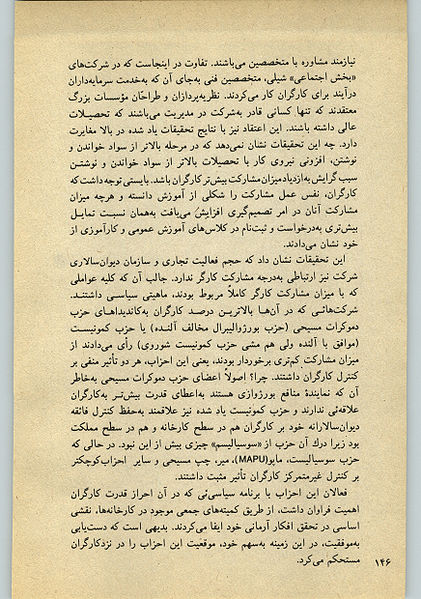 نیازمند مشاوره با متخصصین می‌باشند. تفاوت در اینجاست که در شرکت‌های
«بخش اجتماعی» شیلی، متخصصین فنی به‌جای آن که به‌خدمت سرمایه‌داران
درآیند برای کارگران کار می‌کردند. نظریه‌پردازان و طراحّان مؤسسات بزرگ
معتقدند که تنها کسانی قادر به‌شرکت در مدیریت می‌باشند که تحصیلات
عالی داشته باشند. این اعتقاد نیز با نتایج تحقیقات یاد شده در بالا مغایرت
دارد. چه این تحقیقات نشان نمی‌دهد که در مرحله بالاتر از سواد خواندن و
نوشتن، افزونی نیروی کار با تحصیلات بالاتر از سواد خواندن و نوشتن
سبب گرایش به‌ازدیاد میزان مشارکت بیش‌تر کارگران باشد. بایستی توجه داشت که
کارگران، نفس عمل مشارکت را شکلی از آموزش دانسته و هرچه میزان
مشارکت آنان در امر تصمیم‌گیری افزایش می‌یافت به‌همان نسبت تمایل
بیش‌تری به‌درخواست و ثبت‌نام در کلاس‌های آموزش عمومی و کارآموزی از
خود نشان می‌دادند.
این تحقیقات نشان داد که حجم فعالیت تجاری و سازمان دیوان‌سالاری
شرکت نیز ارتباطی به‌درجه مشارکت کارگر ندارد. جالب آن که کلیه عواملی
که با میزان مشارکت کارگر کاملاً مربوط بودند، ماهیتی سیاسی داشتند.
شرکت‌هائی که در آن‌ها بالاترین درصد کارگران به‌کاندیداهای حزب
دموکرات مسیحی (حزب بورژوالیبرال مخالف آلنده) یا حزب کمونیست
(موافق با آلنده ولی هم مشی حزب کمونیست شوروی) رأی می‌دادند از
میزان مشارکت کم‌تری برخوردار بودند، یعنی این احزاب، هر دو تأثیر منفی بر
کنترل کارگران داشتند. چرا؟ اصولاً اعضای حزب دموکرات مسیحی به‌خاطر
آن که نمایندهٔ منافع بورژوازی هستند به‌اعطای قدرت بیش‌تر به‌کارگران
علاقه‌ئی ندارند و حزب کمونیست یاد شده نیز علاقمند به‌حفظ کنترل فائقه
دیوان‌سالارانه خود بر کارگران هم در سطح کارخانه و هم در سطح مملکت
بود زیرا درك آن حزب از «سوسیالیسم» چیزی بیش از این نبود. در حالی که
حزب سوسیالیست، ماپو(MAPU)، میر، چپ مسیحی و سایر احزاب‌کوچکتر
بر کنترل غیرمتمرکز کارگران تأثیر مثبت داشتند.
فعالان این احزاب با برنامه سیاسی‌ئی که در آن احراز قدرت کارگران
اهمیت فراوان داشت، از طریق کمیته‌های جمعی موجود در کارخانه‌ها، نقشی
اساسی در تحقق افکار آرمانی خود ایفا می‌کردند. بدیهی است که دست‌یابی
به‌موفقیت، در این زمینه به‌سهم خود، موقعیت این احزاب را در نزدکارگران
مستحکم می‌کرد.
۱۴۶